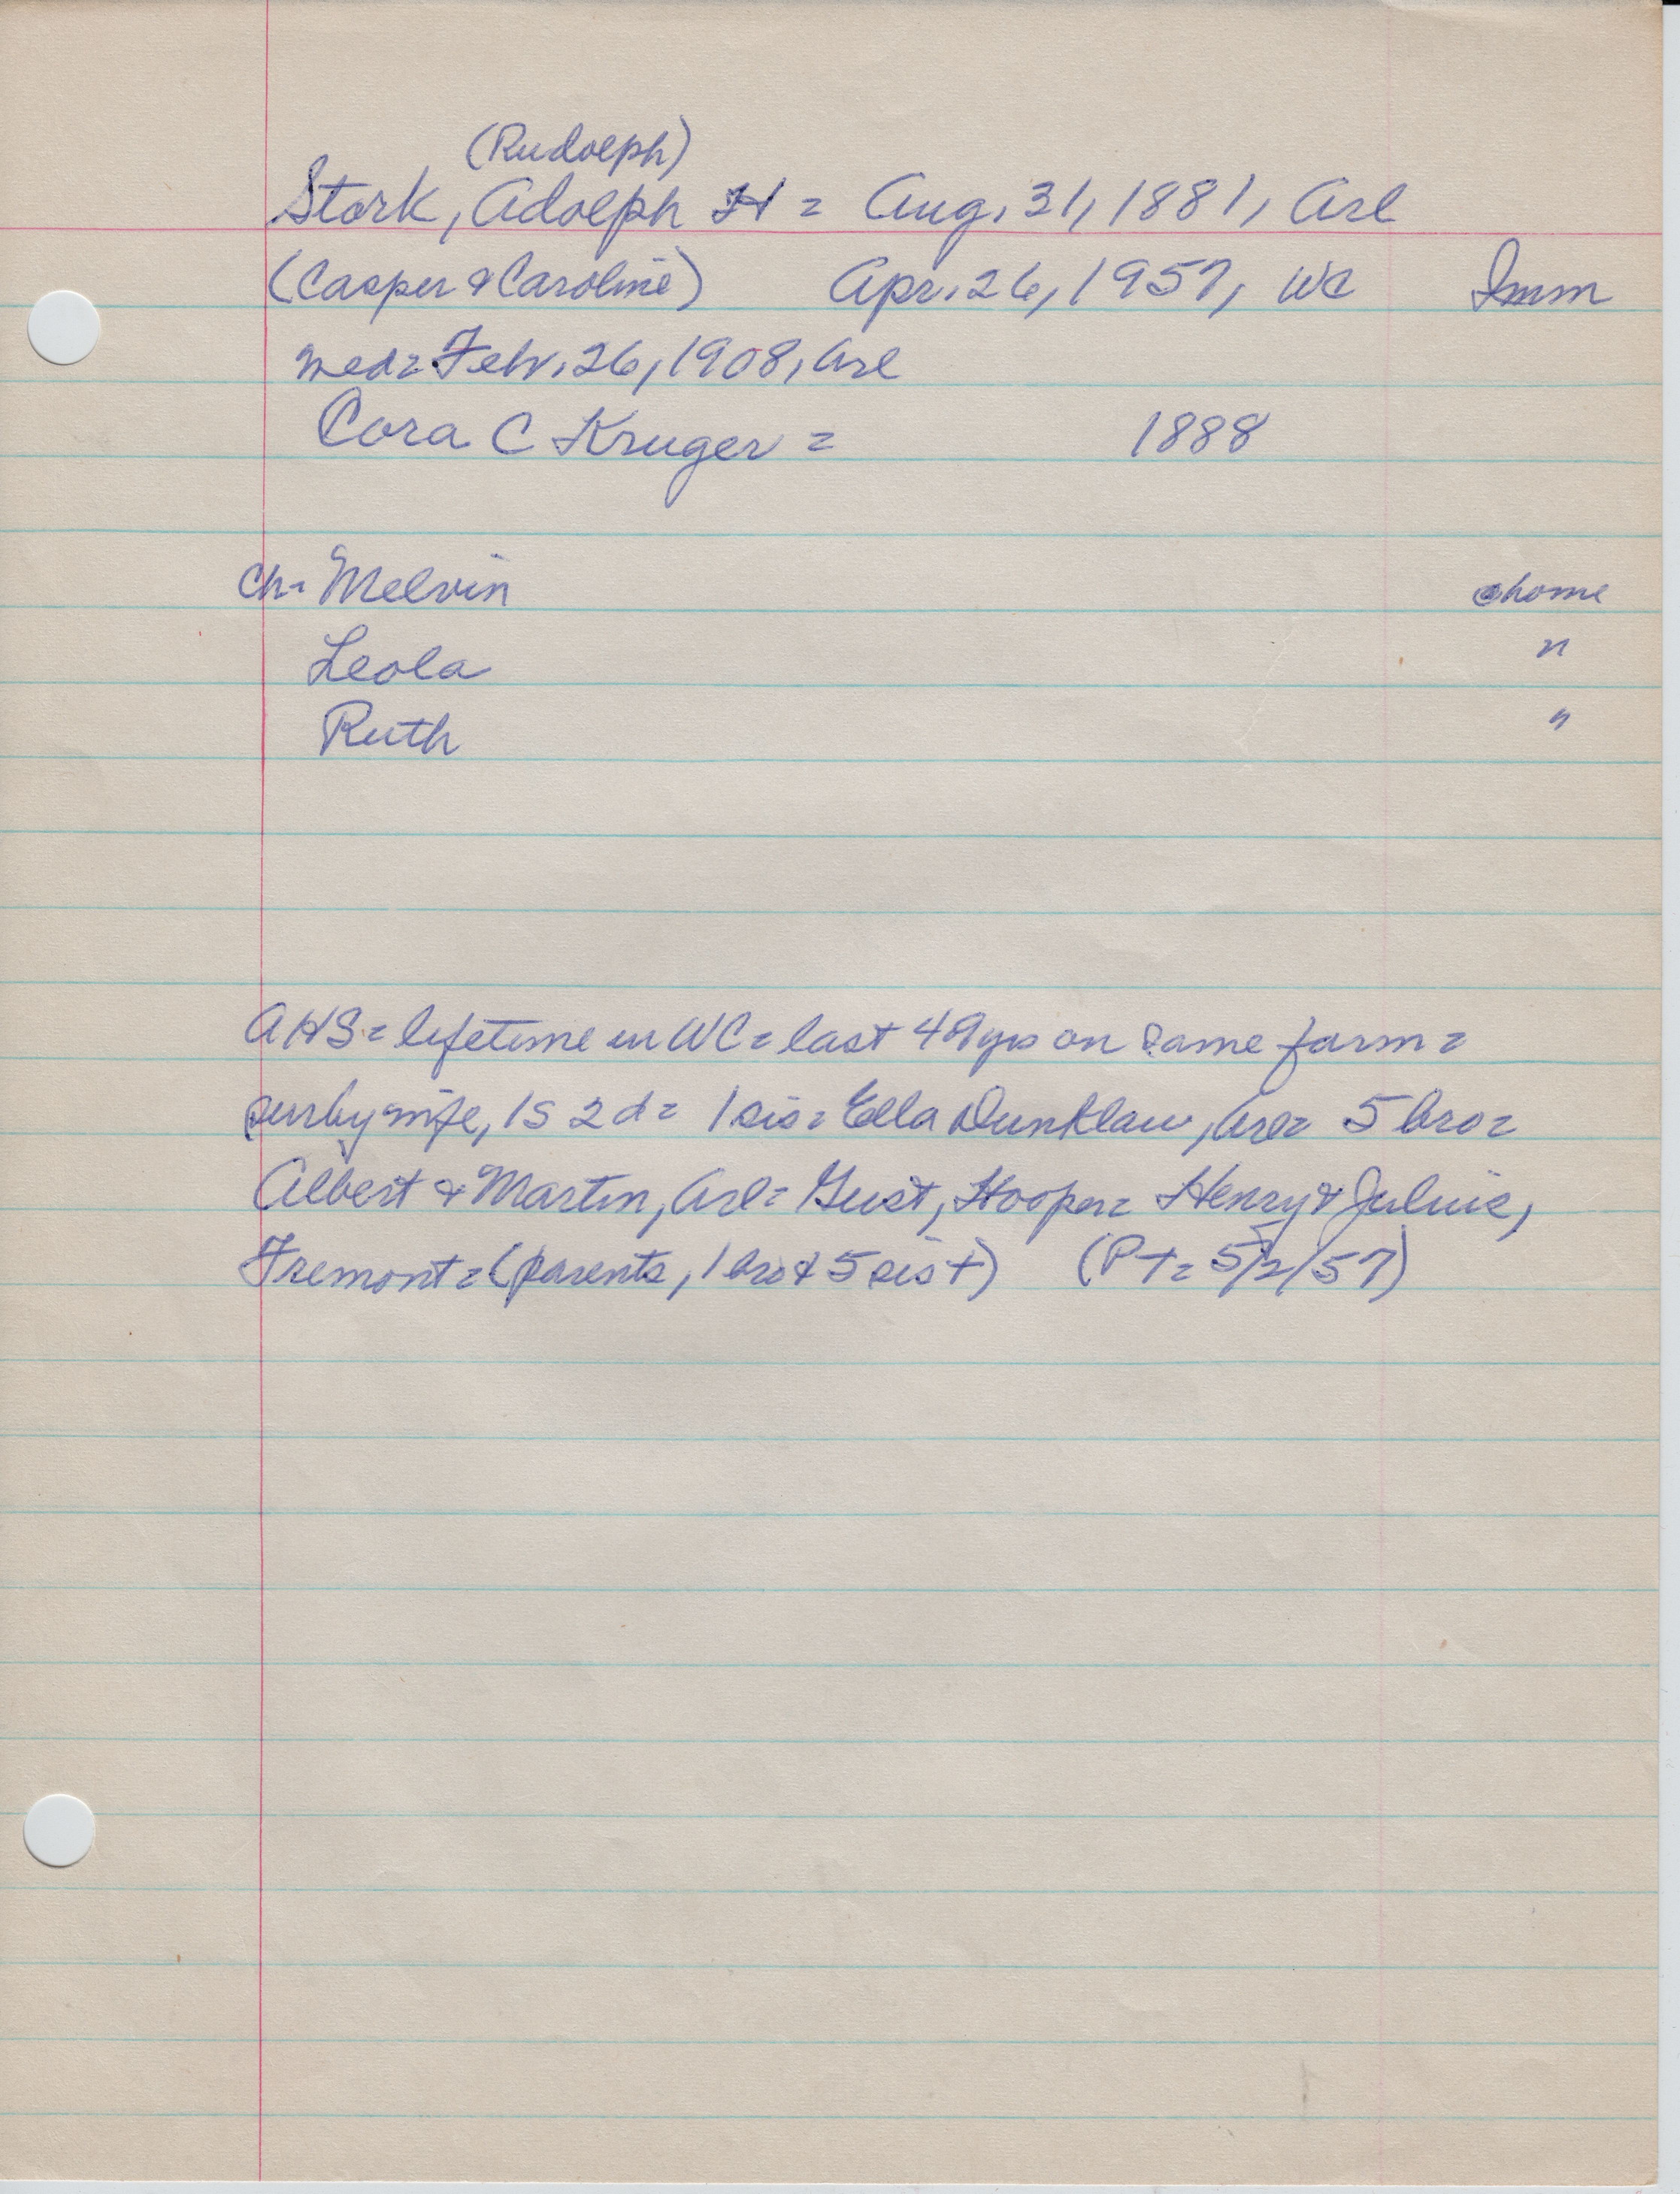 (Rudolph)
Stork, Adolph H = Aug. 31, 1881, Arl
(Casper & Caroline) Apr. 26, 1957, WC Imm
med = Febr. 26, 1908, Arl
Cora C Kruger = 1888
Ch - Melvin @home
Leola "
Ruth "
AHS = lifetime in WC = last 49 yrs on same farm =
surby wife, 1 s 2 d = 1 sis = Ella Dunklau, Arl = 5 bro =
Albert & Martin, Arl = Gust, Hooper = Henry & Julius,
Fremont = (parents, 1 bro & 5 sis +) (PT = 5/2/57)